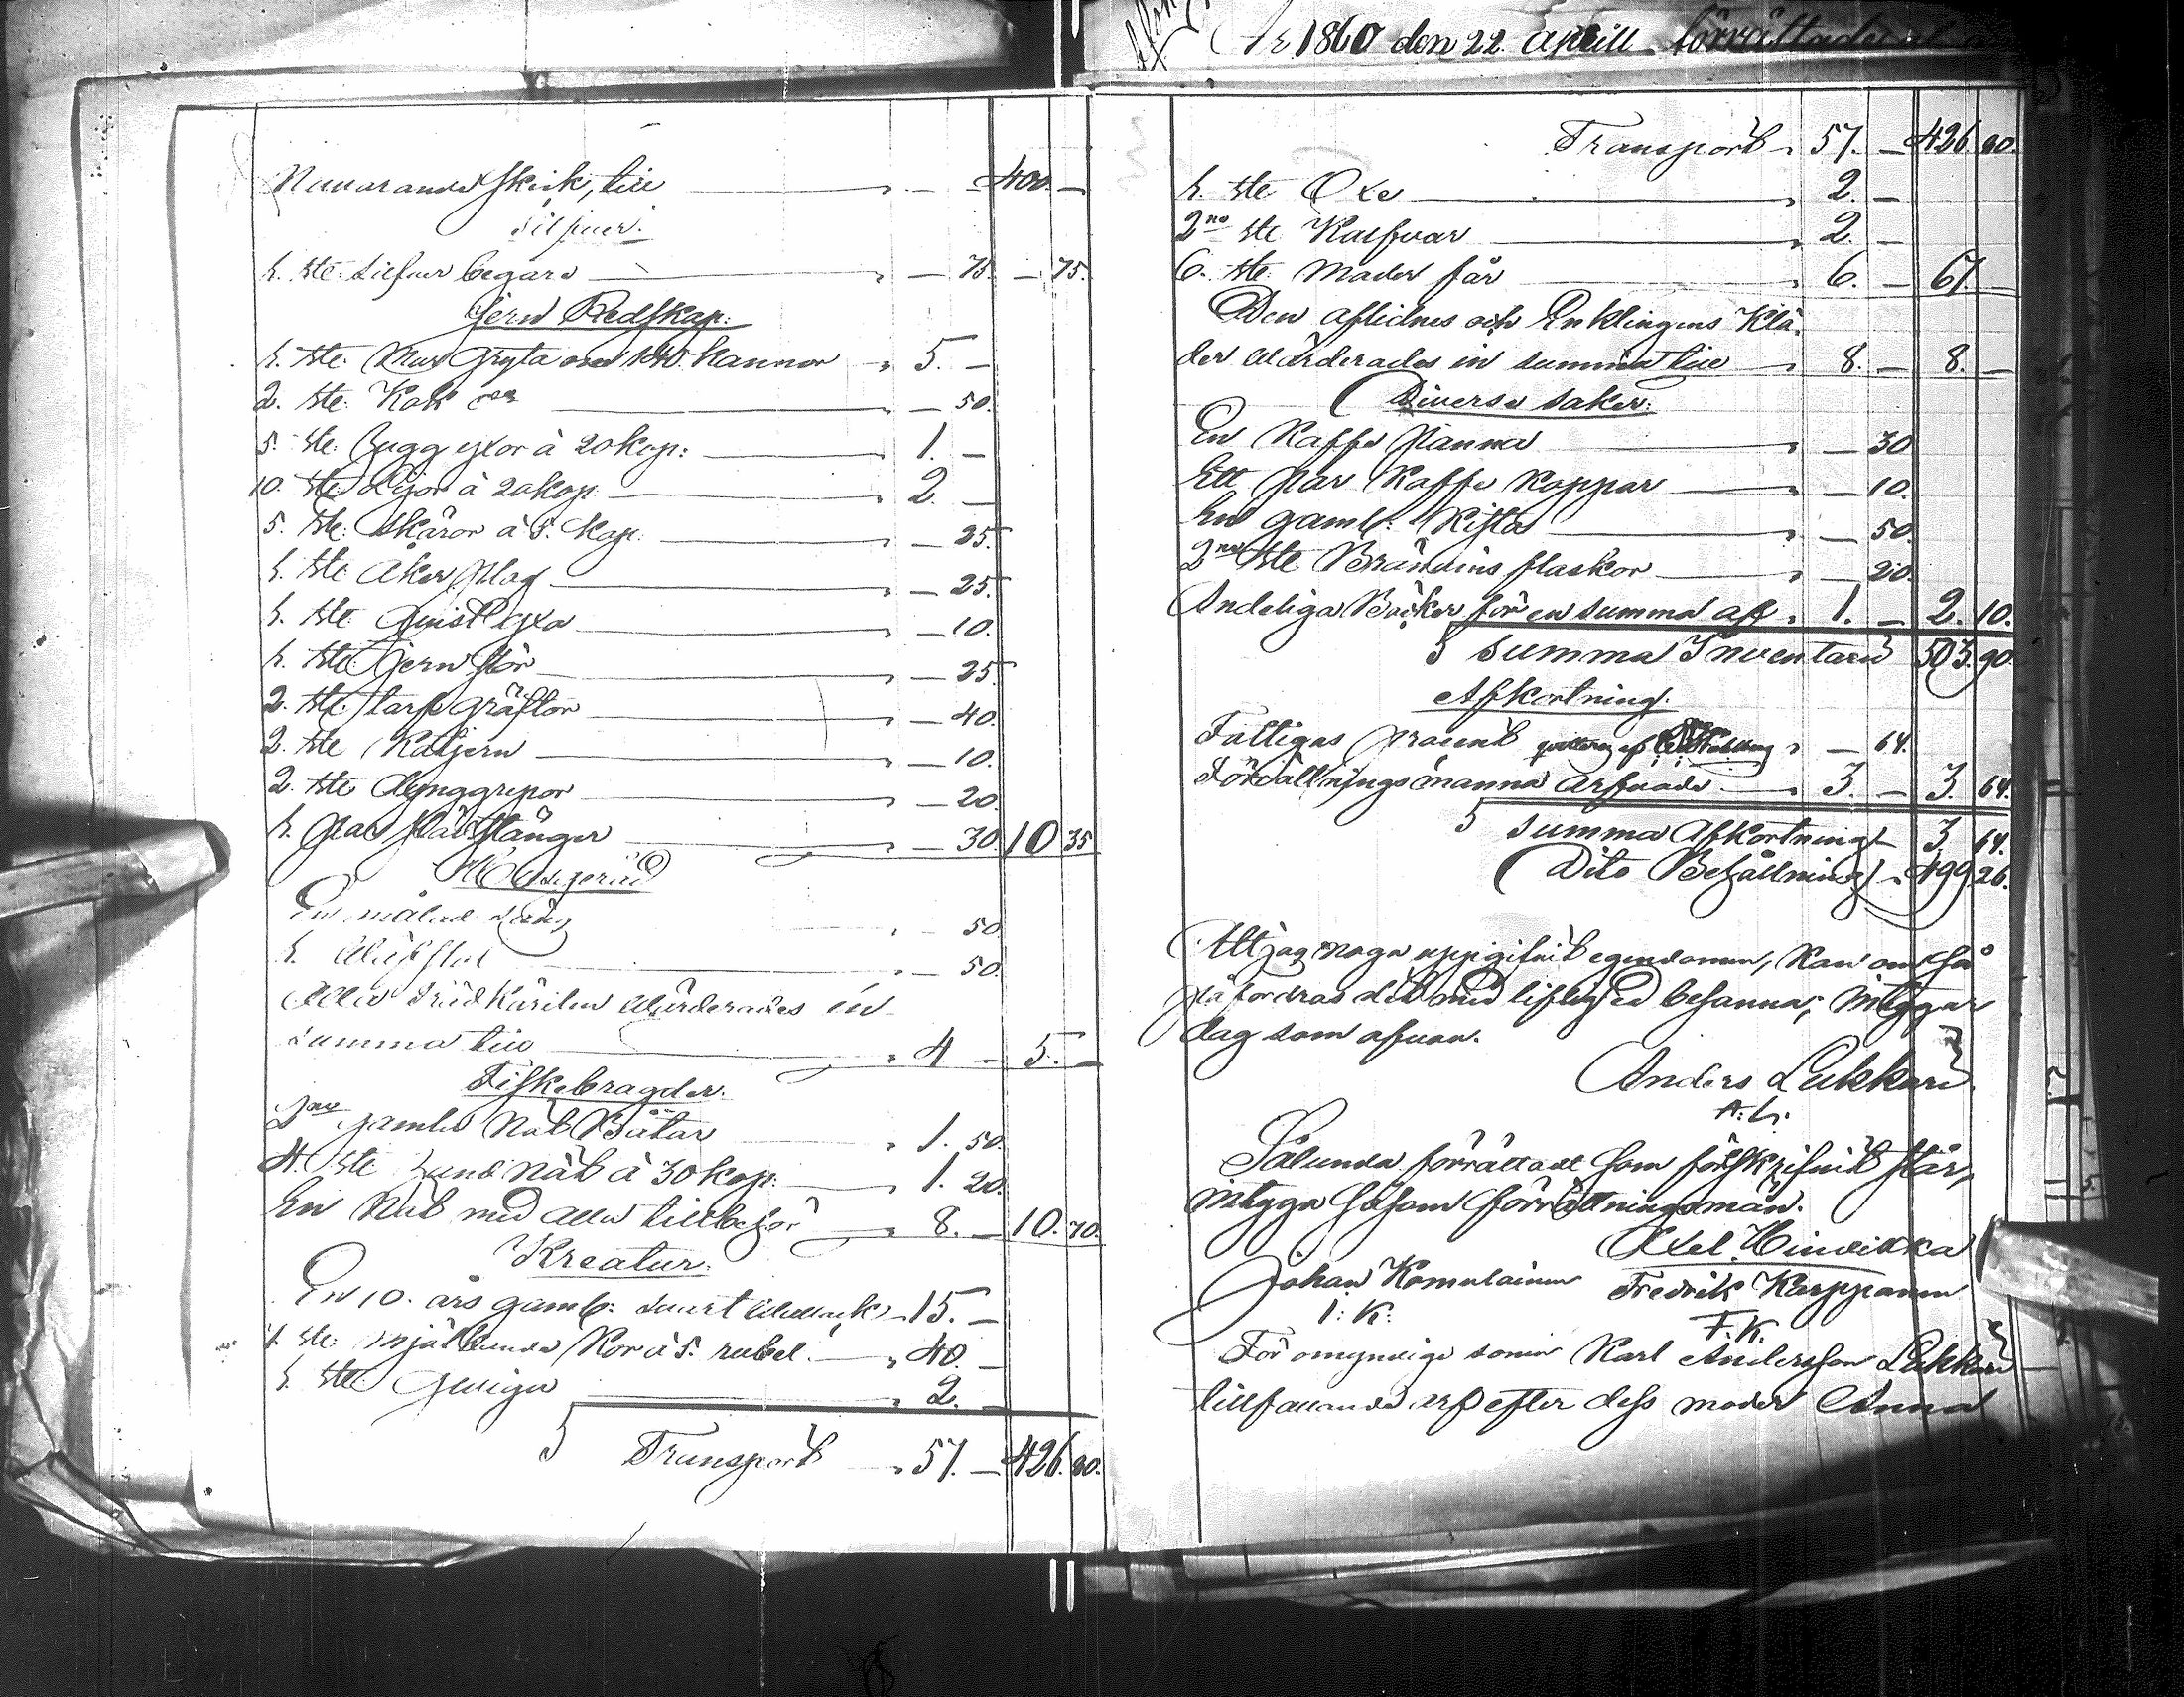 Nuvarande skick, till — — 400. —
Silfver.
1. ste. silfver begare — 75. — 75.
Jern Redskap:
1. ste. Mur Gryta om 140. kannor 5. —
2. ste. Kok d:o — 50.
5. ste. Hugg yxor à 20 kop: 1. —
10. ste Lijor à 20 kop. 2. —
5. ste. Skäror à 5. kop. — 25.
1. ste. Åker Plog — 25.
1. ste Qvist yxa — 10.
1. ste Jern stör — 25.
2. ste. tarf gräftor — 40.
2. ste Ratjern — 10.
2. ste dynggrepar — 20.
1. Par stänger — 30. 10 35
Husgeråd
En målad säng — 50.
1. Väfstol — 50.
Alla Trädkärilen värderades in
summa till 4. — 5. —
Fiskebragder.
2ne gamla Not Båtar 1. 50.
4. ste Sund Nät à 30 kop. 1. 20.
En Not med alla tillbehör 8. — 10. 70.
Kreatur.
En 10. års gaml: svart vallack 15. —
ste. mjölkande Kor à 5. rubel. 40. —
1. ste Qviga 2.
Transport 57. — 426. 80.
År 1860 den 22. Aprill förrättades
Transport 57. — 426. 80.
1. ste Oxe 2. —
2ne ste Kalfvar 2. —
6. ste Moder får 6. — 67.
Den aflidnes och Enklingens Klä-
der värderades in summa till 8. — 8. —
Diverse saker:
En Kaffe Panna — 30
Ett par Kaffe Koppar — 10.
En gaml: Kista — 50.
2ne ste Brändvins flaskor — 20.
Andeliga Böcker för en summa af 1. — 2. 10.
Summa Inventarii 503. 90
Afkortning.
Fattigas procent — 64.
Förrättningsmanna arfvode 3. — 3. 64.
Summa Afkortning 3. 64.
Dito Behållning 499. 26.
Att jag noga uppgifvit egendomen, kan om så
påfordras det med liflig ed besanna; intygar
dag som ofvan.
Anders Lukkari
A. L.
Sålunda förrättadt som förskrifvit står,
intyga såsom förrättningsmän.
Axel Hindikka
Johan Komulainen Fredrik Karppanen
I: K: F. K.
För omyndige sonen Karl Andersson Lukkari
tillfallande arf efter dess moder Anna